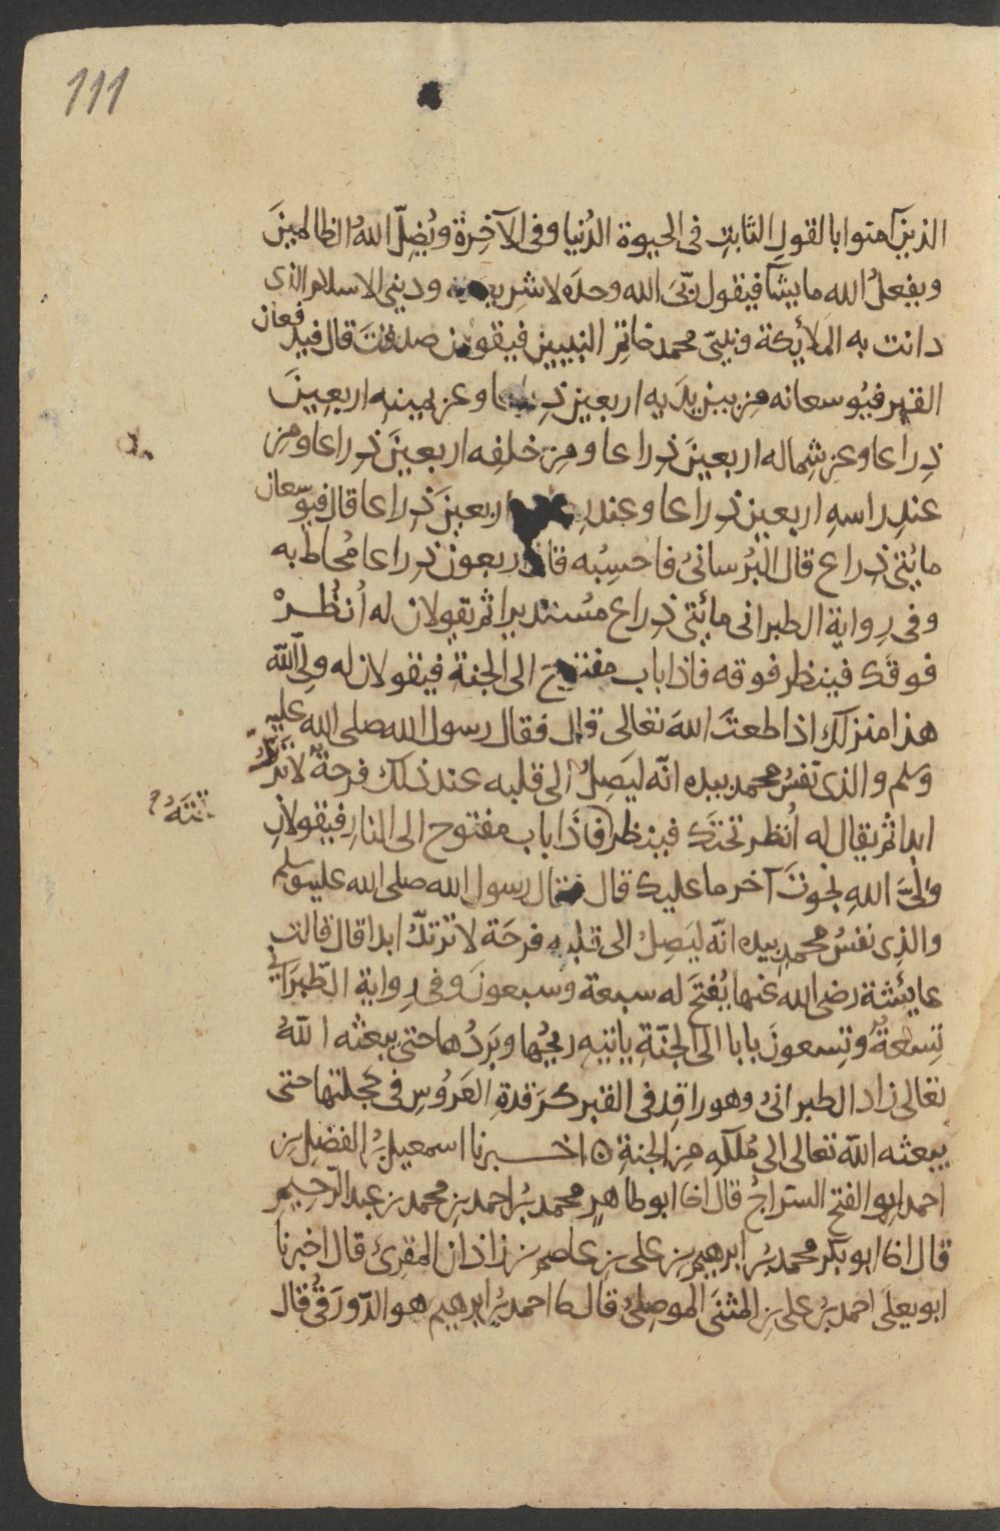 111
الذين آمنوا بالقول الثابت في الحيوة الدُنيا وفي الآخرة ويُضِلّ اللهُ الظالمينَ
ويفعلُ الله ما يشآ فيقول ربّيَ الله وحدَه لا شريك له وديني الاسلام الذى
دانت به الملائكة ونبيّى محمد خاتِمُ النبيين فيقولان صدقتَ قال فيدفعان
القبر فيُوسعانه مِن بين يدَيه اربعين ذراعا وعن يمينه اربعينَ
ذِراعا وعن شِماله اربعينَ ذِراعا ومِن خلفِه اربعينَ ذِراعا ومِن
عندِ راسهِ اربعين ذِراعا وعند اربعينَ ذِراعا قال فيوسعان
مائتى ذِراع قال البُرسانىُ فاحسِبُه قال اربعون ذراعا مُحاط به
وفى رِواية الطبرانى مائتَى ذِراع مُستديرا ثم يقولان له اُنظُرْ
فوقَك فينظر فوقه فاذا باب مفتوح الى الجنة فيقولان له ولىَّ الله
هذا منزلك اذا طعتَ اللهَ تعالى قال فقال رسول الله صلى الله عليه
وسلم والذى نفسُ محمد بيده انّه ليَصِلُ الى قلبه عند ذلك فرحةٌ لا ترتدّ
ابدا ثم يقال له اُنظر تحتَك فينظر فاذا باب مفتوح الى النارِ فيقولانِ
ولىَّ اللهِ نجوتَ آخر ما عليك قال فقال رسول الله صلى الله عليه وسلم
والذِى نفسُ محمدٍ بيده انّه ليَصِلُ الى قلبه فرحَة لا ترتدّ ابدا قال قالت
عائشة رضى الله عنها يُفتحَ له سبعة وسبعونَ وفى رِواية الطَّبرَانى
تِسعةٌ وتِسعونَ بابا الى الجنّةِ ياتيه ريحُها وبَردُها حتى يبعثه اللهُ
تعالى زاد الطبرانىُ وهو راقِد فى القبر كرَقدةِ العَرُوسِ فى حَجَلتها حتى
يبعثه اللّه تعالى الى مُلكِه مِن الجنةِ ۞ اخبرنا اسمعيل بنُ الفضلِ بنِ
احمد ابو الفتح السراجُ قال انا ابو طاهرٍ محمد بنُ احمد بنِ محمد بن عبد الرّحيمِ
قال انا ابو بكر محمد بنُ ابرهيم بن على بن عاصم بن زاذان المقرِئ قال اخبرنا
ابو يعلى احمد بنُ على بنِ المثنى الموصِلىُ قال ثنا احمد بنُ ابرهيم هو الدّورَقىُ قال